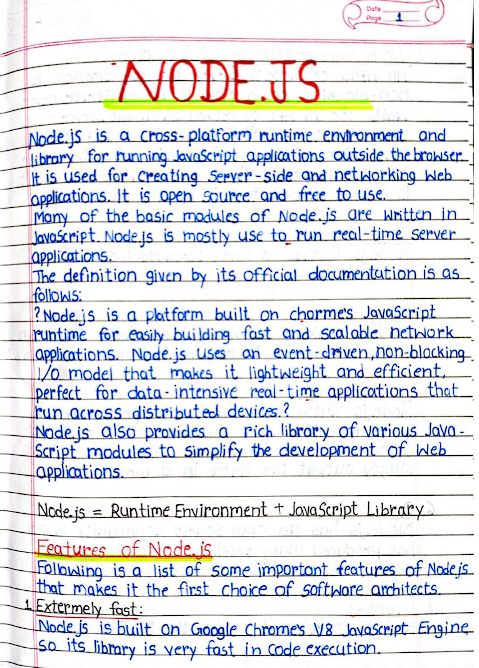 Date
Page 1
NODE.JS
Node.js is a cross-platform runtime environment and
library for running JavaScript applications outside the browser
It is used for creating server-side and networking web
applications. It is open source and free to use.
Many of the basic modules of Node.js are written in
JavaScript. Node.js is mostly use to run real-time server
applications.
The definition given by its official documentation is as
follows:
? Node.js is a platform built on chorme's JavaScript
runtime for easily building fast and scalable network
applications. Node.js uses an event-driven, non-blocking
I/O model that makes it lightweight and efficient,
perfect for data-intensive real-time applications that
run across distributed devices.?
Node.js also provides a rich library of various Java-
Script modules to simplify the development of web
applications.
Node.js = Runtime Environment + JavaScript Library
Features of Node.js
Following is a list of some important features of Node.js
that makes it the first choice of software architects.
1. Extermely fast:
Node.js is built on Google Chrome's V8 JavaScript Engine
so its library is very fast in code execution.